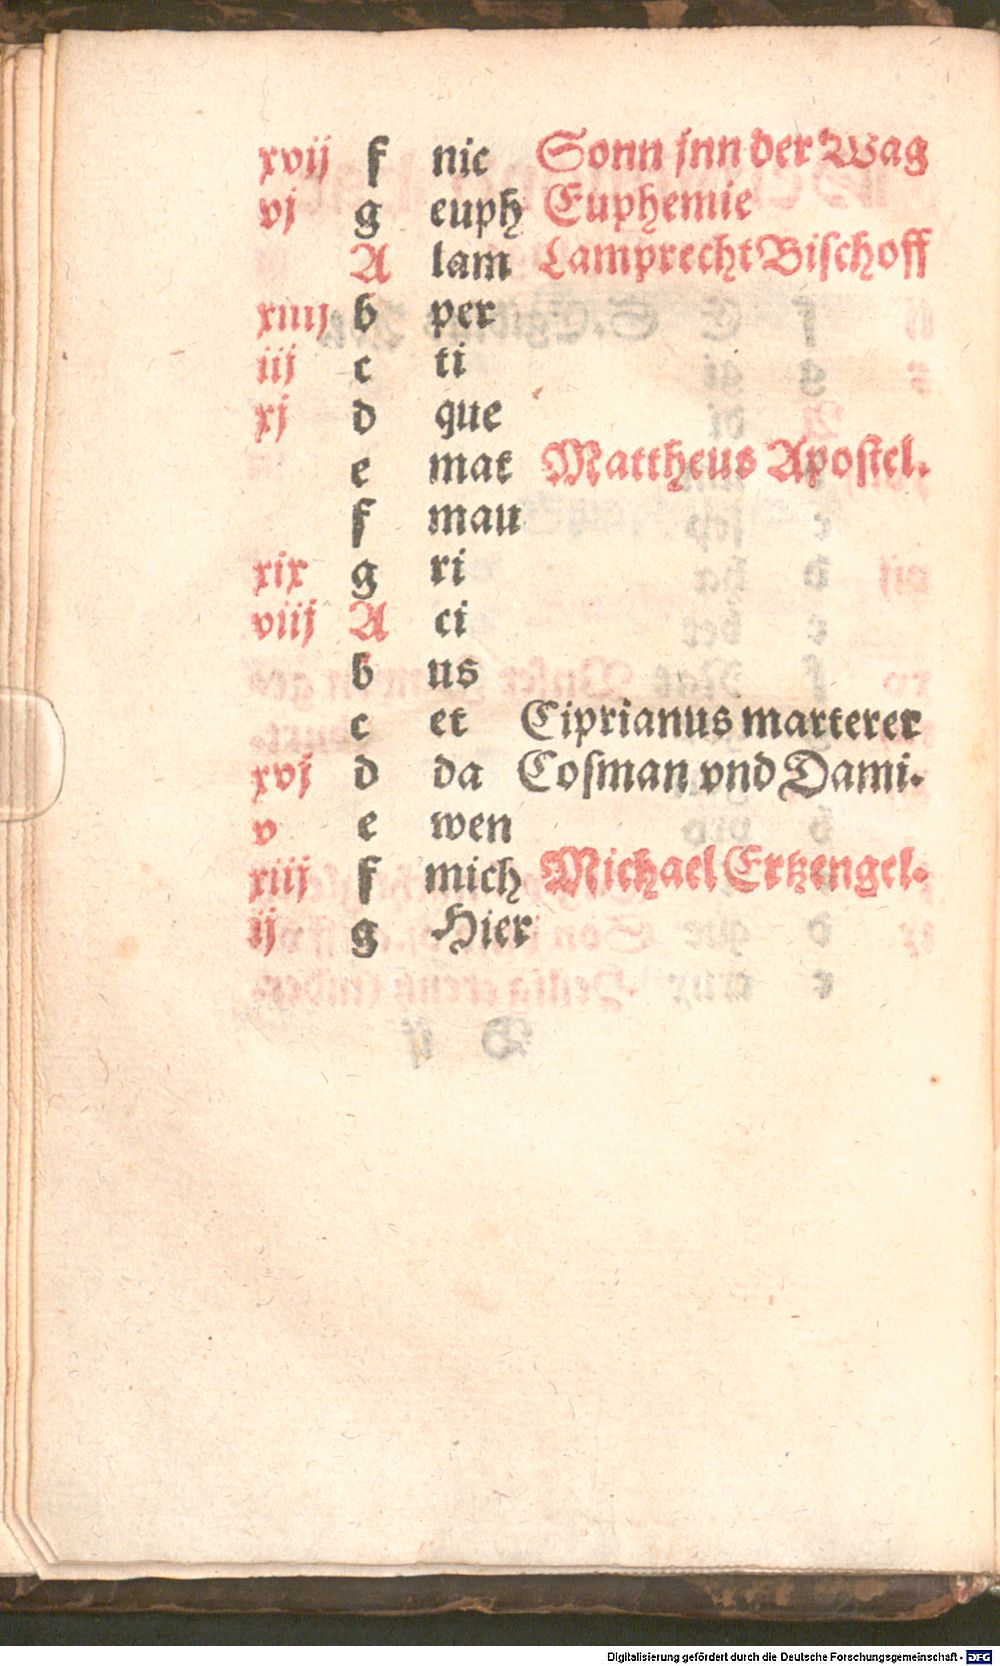 xvij f nic Sonn jnn der Wag
vj g euph Euphemie
A lam Lamprecht Bischoff
xiiij b per
iij c ti
xj d que
e mat Mattheus Apostel.
f mau
xix g ri
viij A ci
b us
c et Ciprianus marterer
xvj d da Cosman vnd Dami.
v e wen
xiij f mich Michael Ertzengel.
ij g Hier
Digitalisierung gefördert durch die Deutsche Forschungsgemeinschaft - DFG